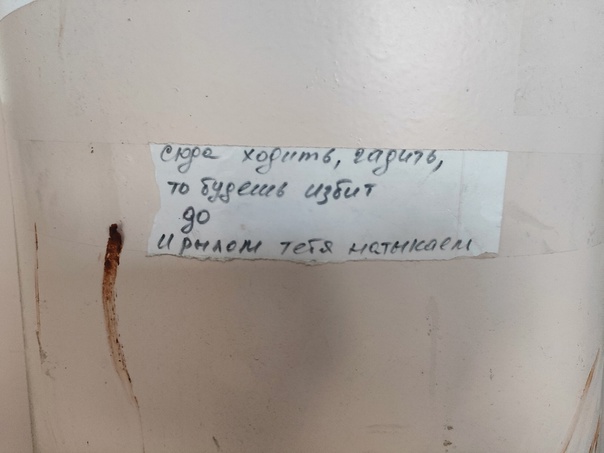 сюда ходить, гадить,
то будешь избит
до
И рылом тебя натыкаем